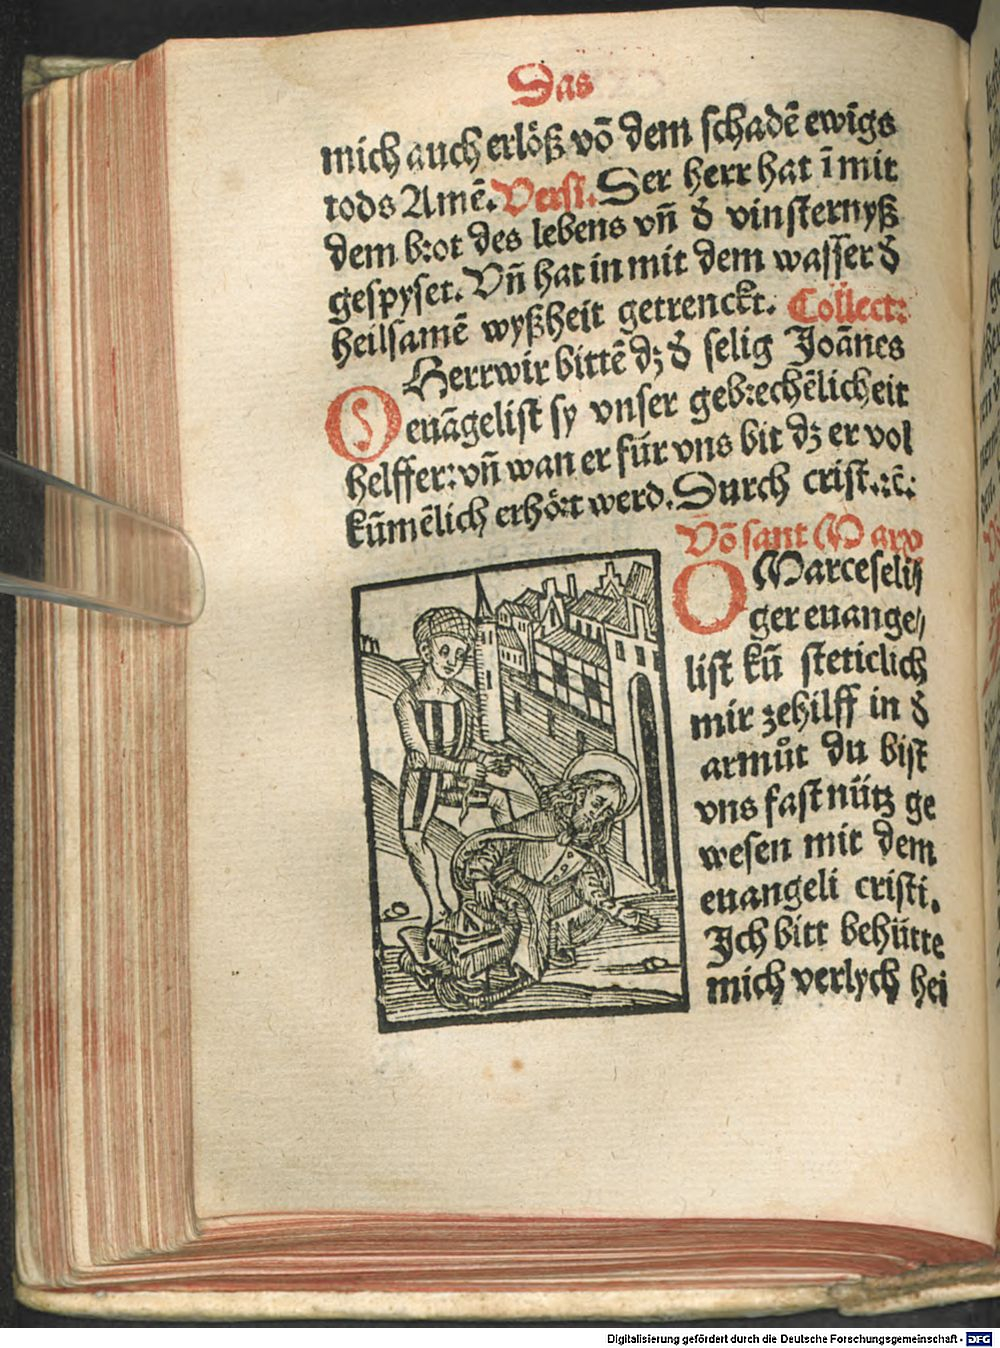 Das
mich auch erlöß võ dem schadẽ ewigs
tods Amẽ. Versi. Der herr hat ĩ mit
dem brot des lebens vñ đ vinsternyß
gespyset. Vñ hat in mit dem wasser đ
heilsamẽ wyßheit getrenckt. Collect:
O Herr wir bittẽ dz đ selig Joãnes
euãgelist sy vnser gebrechẽlicheit
helffer: vñ wan er für vns bit dz er vol
kũmẽlich erhört werd. Durch crist. ꝛc̃:
Võ sant Marx
O Marce seli
ger euange⸗
list kũ steticlich
mir zehilff in đ
armůt du bist
vns fast nütz ge
wesen mit dem
euangeli cristi.
Ich bitt behütte
mich verlych hei
Digitalisierung gefördert durch die Deutsche Forschungsgemeinschaft - DFG